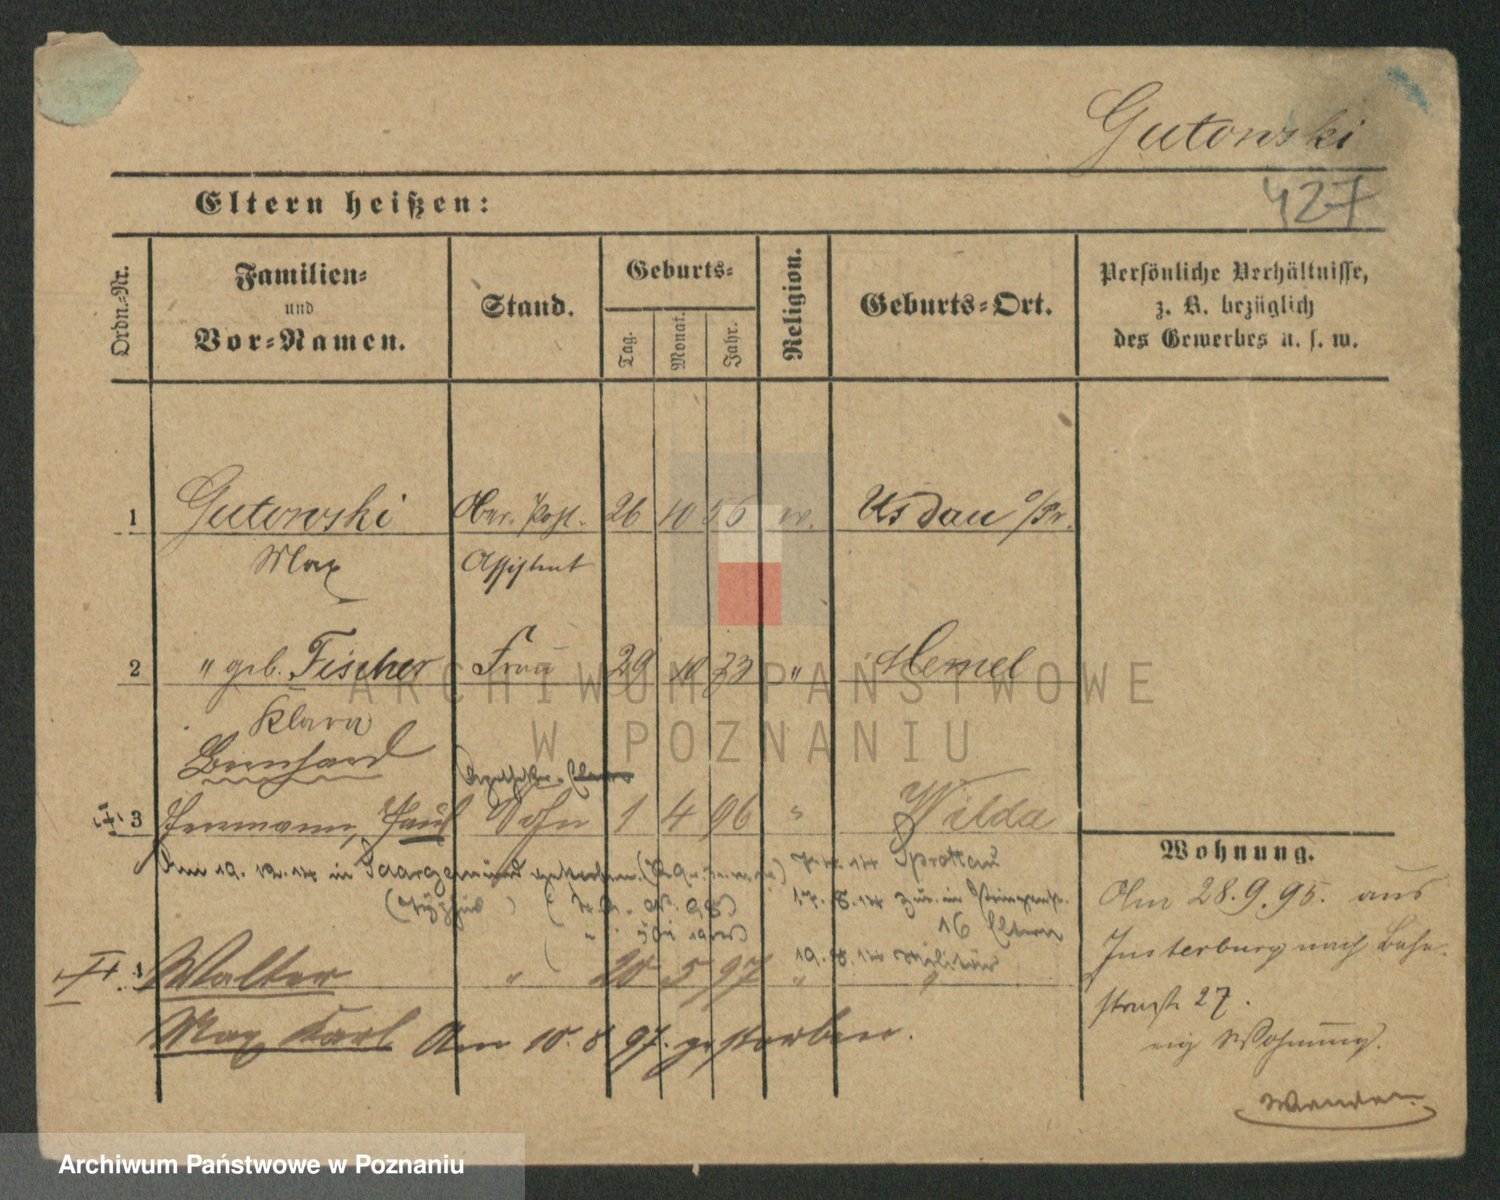 Gutowski
427
Eltern heißen:
Ordn.=Nr.
Familien=
und
Vor=Namen.
Stand.
Geburts=
Tag.
Monat.
Jahr.
Religion.
Geburts=Ort.
Persönliche Verhältnisse,
z. B. bezüglich
des Gewerbes u. s. w.
1 Gutowski Ober-Post- 26 10 56 ev. Usdau O/Pr.
Max Assistent
2 " geb. Fischer Frau 29 10 73 " Memel
Klara
Bernhard
3 Hermann, Paul Sohn 1 4 96 " Wilda
Am 19. 12. 14 in Saargemünd gestorben.
14 Sprottau
17. 8. 14 zur. in
16 Eltern
19. 8. 14 Militär
4 Walter " 20 5 97 " "
Max Karl Am 10. 8 97. gestorben.
Wohnung.
Am 28.9.95. aus
Insterburg nach Bahn-
straße 27.
eig Wohnung.
ARCHIWUM PAŃSTWOWE
W POZNANIU
Archiwum Państwowe w Poznaniu